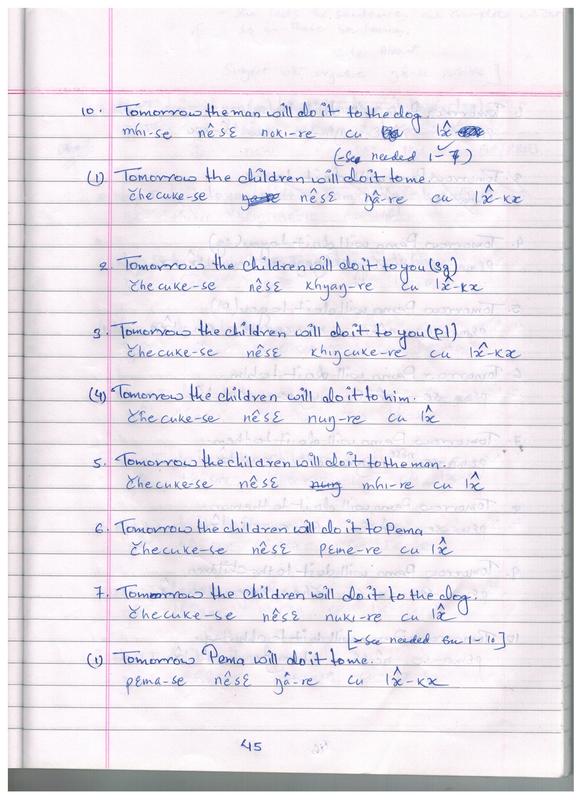 10. Tomorrow the man will do it to the dog.
mhi-se nêsɛ nakɪ-re cu lx̂
(-se needed 1-7)
(1) Tomorrow the children will do it to me.
čhecuke-se nêsɛ ŋâ-re cu lx̂-kx
2. Tomorrow the children will do it to you (sg)
čhecuke-se nêsɛ khyaŋ-re cu lx̂-kx
3. Tomorrow the children will do it to you (pl)
čhecuke-se nêsɛ khiŋcuke-re cu lx̂-kx
(4) Tomorrow the children will do it to him.
čhecuke-se nêsɛ nuŋ-re cu lx̂
5. Tomorrow the children will do it to the man.
čhecuke-se nêsɛ mhi-re cu lx̂
6. Tomorrow the children will do it to Pema
čhecuke-se nêsɛ pɛme-re cu lx̂
7. Tomorrow the children will do it to the dog.
čhecuke-se nêsɛ nakɪ-re cu lx̂
[-se needed 1-10]
(1) Tomorrow Pema will do it to me.
pɛma-se nêsɛ ŋâ-re cu lx̂-kx
45